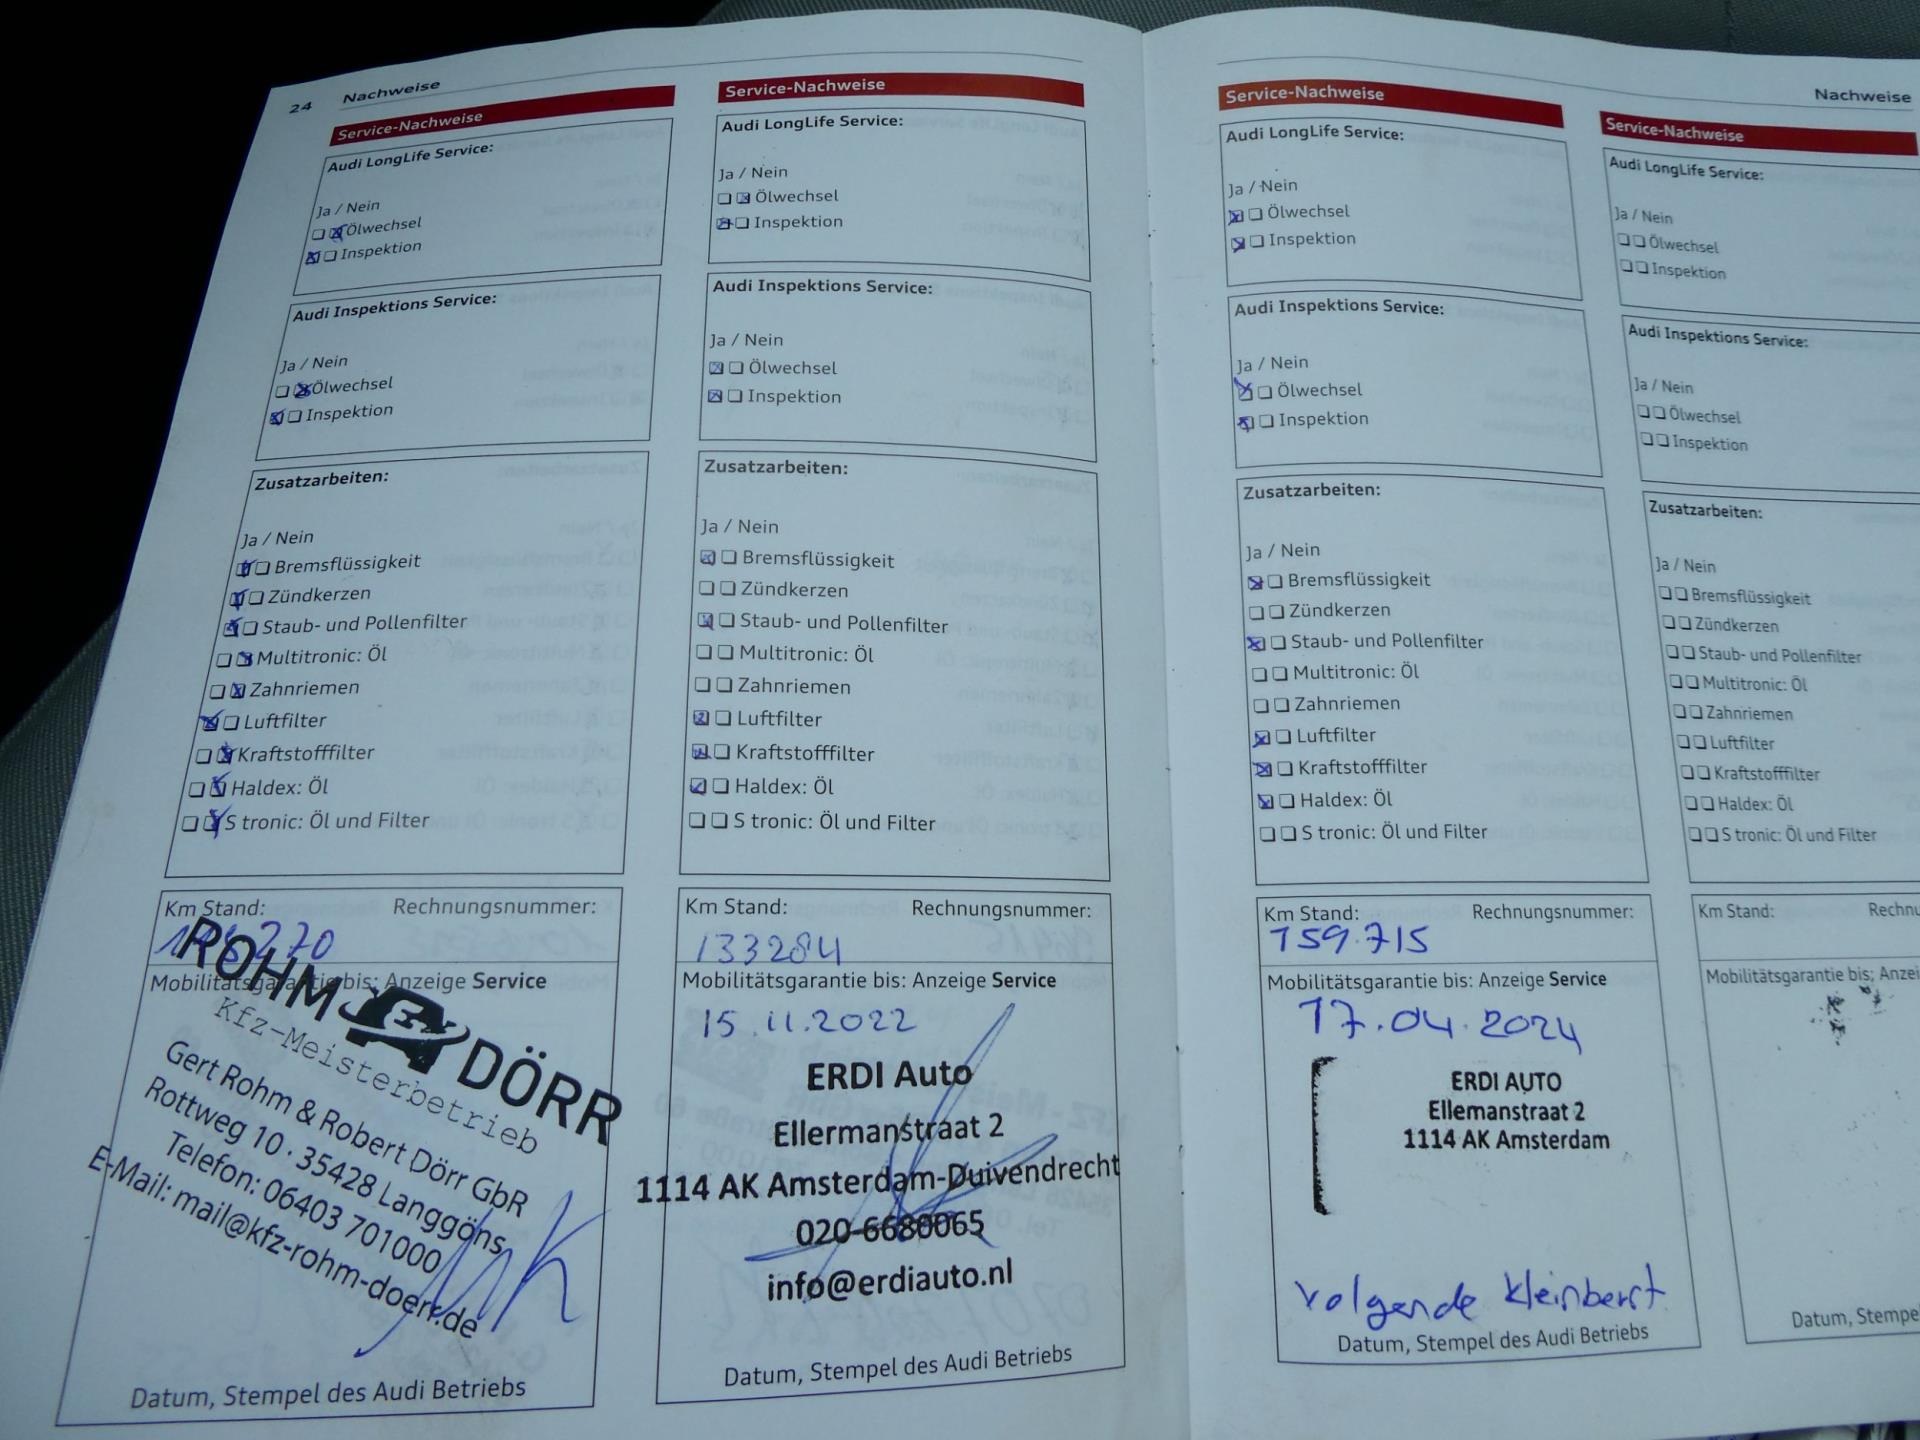 24 Nachweise
Service-Nachweise
Audi LongLife Service:
Ja / Nein
Ölwechsel
Inspektion
Audi Inspektions Service:
Ja / Nein
Ölwechsel
Inspektion
Zusatzarbeiten:
Ja / Nein
Bremsflüssigkeit
Zündkerzen
Staub- und Pollenfilter
Multitronic: Öl
Zahnriemen
Luftfilter
Kraftstofffilter
Haldex: Öl
S tronic: Öl und Filter
Km Stand: Rechnungsnummer:
Mobilitätsgarantie bis: Anzeige Service
ROHM DÖRR
Kfz-Meisterbetrieb
Gert Rohm & Robert Dörr GbR
Rottweg 10 · 35428 Langgöns
Telefon: 06403 701000
E-Mail: mail@kfz-rohm-doerr.de
Datum, Stempel des Audi Betriebs
Service-Nachweise
Audi LongLife Service:
Ja / Nein
Ölwechsel
Inspektion
Audi Inspektions Service:
Ja / Nein
Ölwechsel
Inspektion
Zusatzarbeiten:
Ja / Nein
Bremsflüssigkeit
Zündkerzen
Staub- und Pollenfilter
Multitronic: Öl
Zahnriemen
Luftfilter
Kraftstofffilter
Haldex: Öl
S tronic: Öl und Filter
Km Stand: Rechnungsnummer:
133284
Mobilitätsgarantie bis: Anzeige Service
15.11.2022
ERDI Auto
Ellermanstraat 2
1114 AK Amsterdam-Duivendrecht
020-6680065
info@erdiauto.nl
Datum, Stempel des Audi Betriebs
Nachweise
Service-Nachweise
Audi LongLife Service:
Ja / Nein
Ölwechsel
Inspektion
Audi Inspektions Service:
Ja / Nein
Ölwechsel
Inspektion
Zusatzarbeiten:
Ja / Nein
Bremsflüssigkeit
Zündkerzen
Staub- und Pollenfilter
Multitronic: Öl
Zahnriemen
Luftfilter
Kraftstofffilter
Haldex: Öl
S tronic: Öl und Filter
Km Stand: Rechnungsnummer:
159.715
Mobilitätsgarantie bis: Anzeige Service
17.04.2024
ERDI AUTO
Ellemanstraat 2
1114 AK Amsterdam
volgende kleinberst
Datum, Stempel des Audi Betriebs
Service-Nachweise
Audi LongLife Service:
Ja / Nein
Ölwechsel
Inspektion
Audi Inspektions Service:
Ja / Nein
Ölwechsel
Inspektion
Zusatzarbeiten:
Ja / Nein
Bremsflüssigkeit
Zündkerzen
Staub- und Pollenfilter
Multitronic: Öl
Zahnriemen
Luftfilter
Kraftstofffilter
Haldex: Öl
S tronic: Öl und Filter
Km Stand: Rechnu
Mobilitätsgarantie bis: Anzei
Datum, Stempe